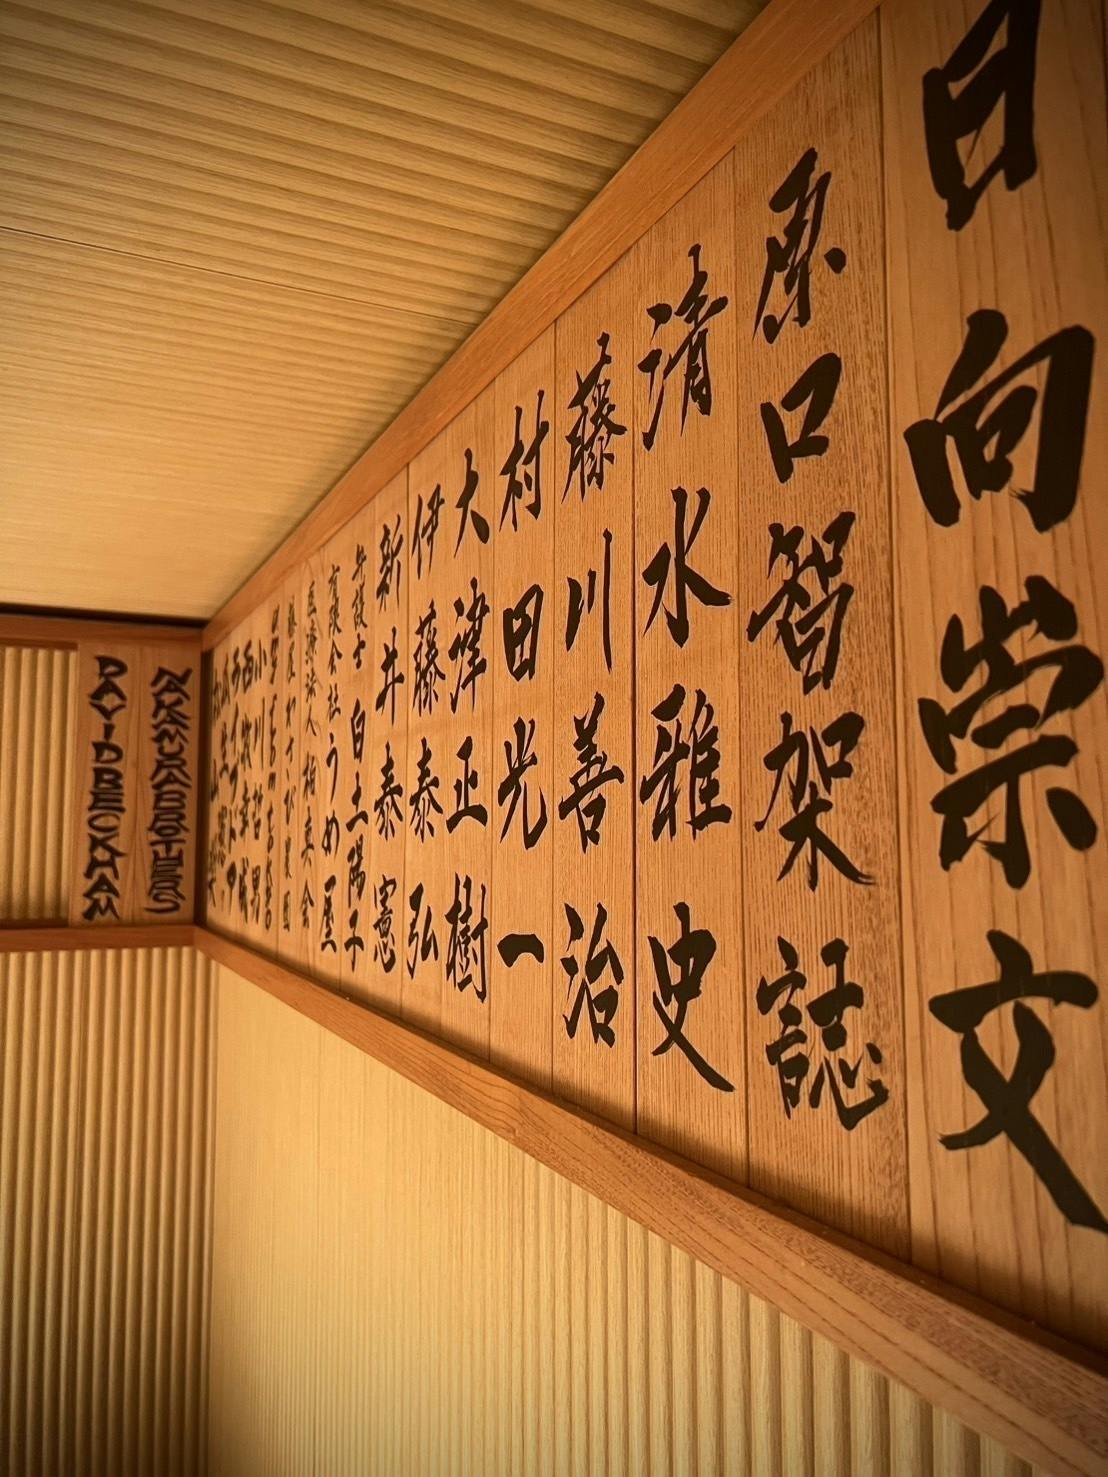 日向崇文
原口智架誌
清水雅史
藤川善治
村田光一
大津正樹
伊藤泰弘
新井泰憲
弁護士 白土陽子
有限会社うめ屋
医療法人 柏真会
小川哲男
NAKAMURA BROTHERS
DAVID BECKHAM